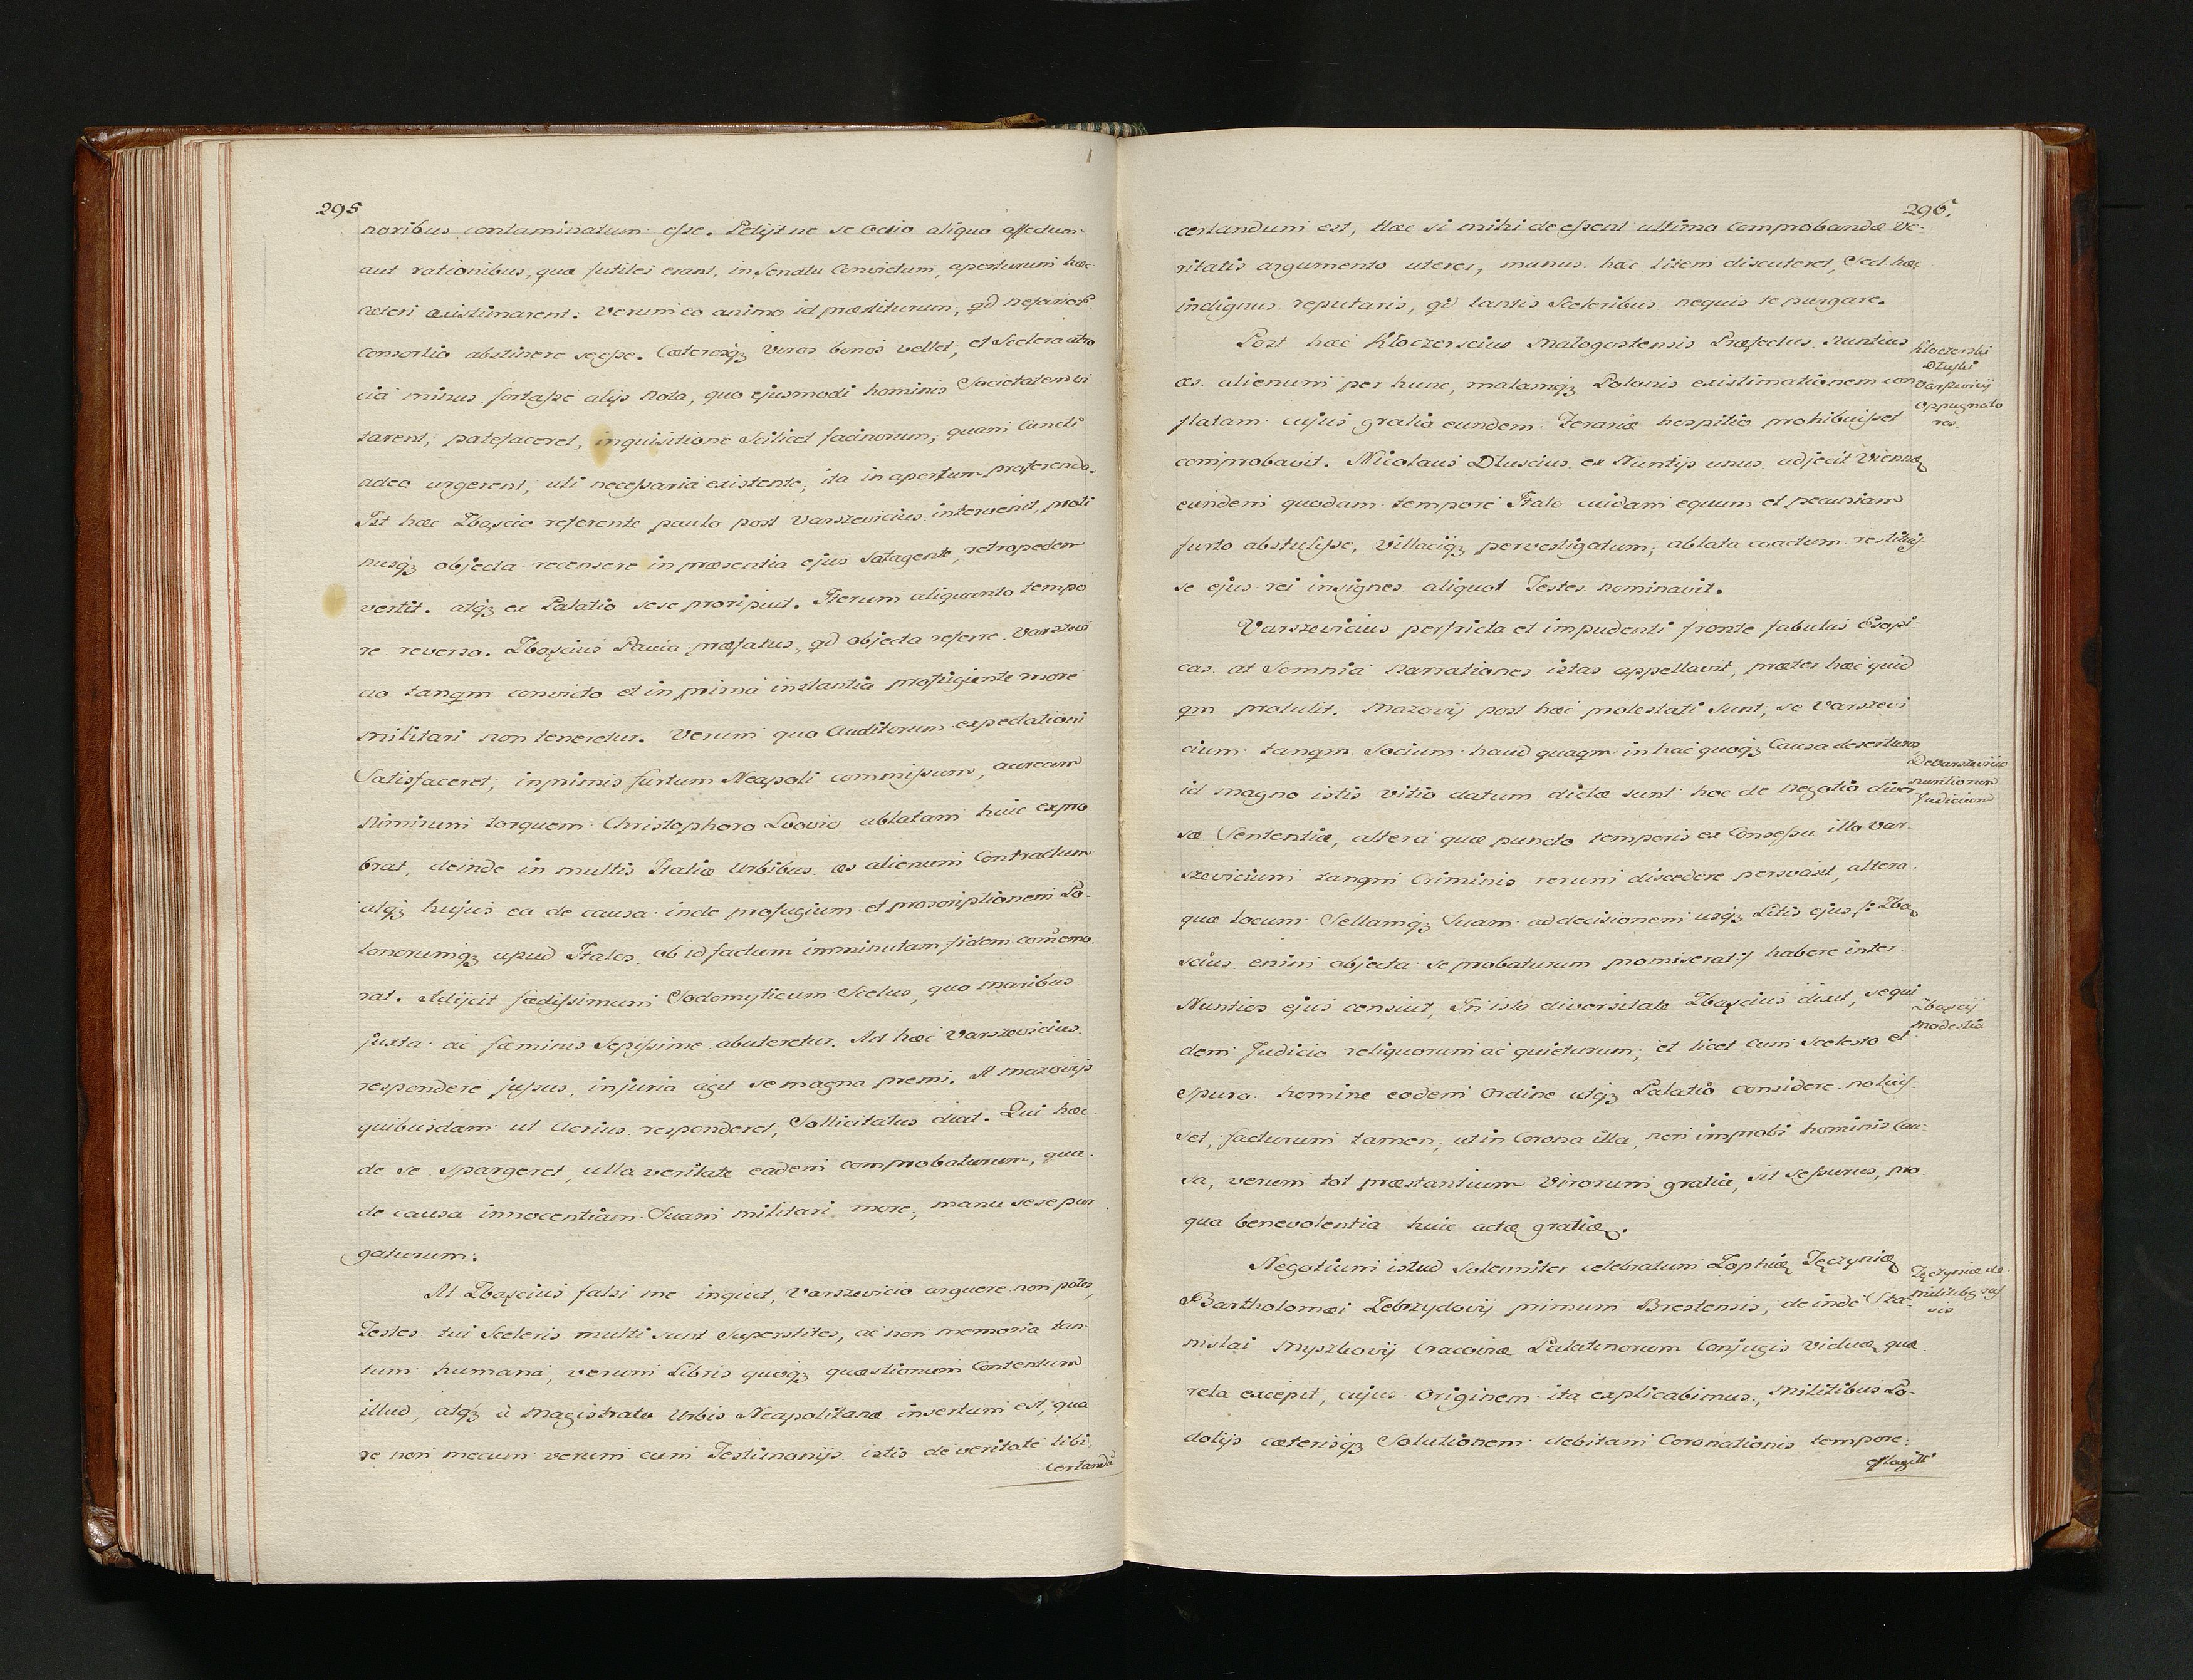 295
noribus contaminatum esse. Petijt ne se odio aliquo affectum
aut rationibus, quæ futiles erant, in Senatu Convictum, aperturum hæc
cæteri existimarent: verum eo animo id præstiturum, qd nefariorũ
consortio abstinere sæpe. Cæterosqȝ viros bonos vellet, et Scelera atro
cia minus fortasse alijs nota, quo ejusmodi hominis Societatem vi
tarent, patefaceret, inquisitione Scilicet facinorum, quam Cuncti
adeo urgerent, uti necessaria existente, ita in apertum proferenda.
Ist hæc Zbascio referente paulo post Varszevicius intervenit, proti
nusqȝ objecta recensere in præsentia ejus Satagente, retropedem
vertit. atqȝ ex Palatio sese proripuit. Iterum aliquanto tempo
re reverso. Zbascius Pauca præfatus, qd objecta referre Varszevi
cio tanqm convicto et in prima instantia profugiente more
militari non teneretur. Verum quo Auditorum expectationi
Satisfaceret, inprimis furtum Neapoli commissum, auream
nimirum torquem Christophoro Lvovio ablatam huic expro
brat, deinde in multis Italiæ Urbibus æs alienum Contractum
atqȝ hujus ea de causa inde profugium et proscriptionem Po-
lonorumqȝ apud Italos ob id factum imminutam fidem com̃emo.
rat. Adijcit fædissimum Sodomyticum Scelus, quo maribus
juxta ac fæminis sepissime abuteretur. Ad hæc Varszevicius
respondere jussus, injuria agit se magna premi. A Mazovijs
quibusdam ut Acrius responderet, Sollicitatus dicit. Qui hæc
de se spargeret, ulla veritate eadem comprobaturum, qua
de causa innocentiam Suam militari more, manu sese pur
gaturum.
At Zbascius falsi me inquit, Varszevicio arguere non potes,
Testes tui Sceleris multi sunt Superstites, ac non memoria tan-
tum humana, verum Libris quoqȝ quæstionum Contentum
illud, atqȝ à Magistratu Urbis Neapolitanæ insertum est, qua
re non mecum verum cum Testimonijs istis de veritate tibi
Certandũ
296.
certandum est, Hæc si mihi deessent ultimo comprobandæ ve-
ritatis argumento uterer, manus hæc litem discuteret, Sed hac
indignus reputaris, qd tantis Sceleribus nequis te purgare.
Post hæc Kłoczerscius Małogostensis Præfectus Nuntius
æs alienum per hunc, malamqȝ Polonis existimationem con
flatam cujus gratia eundem Ferariæ hospitio prohibuisset
comprobavit. Nicolaus Dłuscius ex Nuntijs unus adjecit Viennæ
eundem quodam tempore Italo cuidam equum et pecuniam
furto abstulisse, Villaciqȝ pervestigatum, ablata coactum restituis-
se ejus rei insignes aliquot Testes nominavit.
Kłoczerski
Dłuski
Varszevicij
oppugnato
res.
Varszevicius perfricta et impudenti fronte fabulas Esopi-
cas at Somnia narrationes istas appellavit, præter hæc quid
qm protulit. Mazovij post hæc protestati sunt, se Varszevi
cium tanqm Socium haud quaqm in hac quoqȝ Causa deserturos
id magno istis vitio datum dictæ sunt hoc de negotio diver
sæ Sententiæ, altera quæ puncto temporis ex Consessu illo Var-
szevicium tanqm Criminis rerum discedere persvasit, altera
quæ locum Sellamqȝ Suam ad decisionem usqȝ Litis ejus /: Zba
scius enim objecta se probaturum promiserat :/ habere inter
Nuntios ejus censuit, In ista diversitate Zbascius dixit, se qui
dem Judicio reliquorum ac quieturum, et licet cum scelesto et
spuro homine eodem Ordine atqȝ Palatio considere noluis-
set, facturum tamen, ut in Corona illa, non improbi hominis Cau-
sa, verum tot præstantium Virorum gratia, sit sessurus, pro
qua benevolentia huic actæ gratiæ.
De Varszevicio
nuntiorum
Judicium
Zbascij
modestia
Negotium istud solemniter celebratum Zophiæ Tęczyniæ
Bartholomæi Zebrzydovij primum Brestensis, deinde Sta-
nislai Myszkovij Cracoviæ Palatinorum Conjugis viduæ quæ
rela excepit, cujus Originem ita explicabimus, Militibus Po-
dolijs cæterisqȝ Solutionem debitam Coronationis tempore
Tęczyniæ de
militibȝ
efflagitt